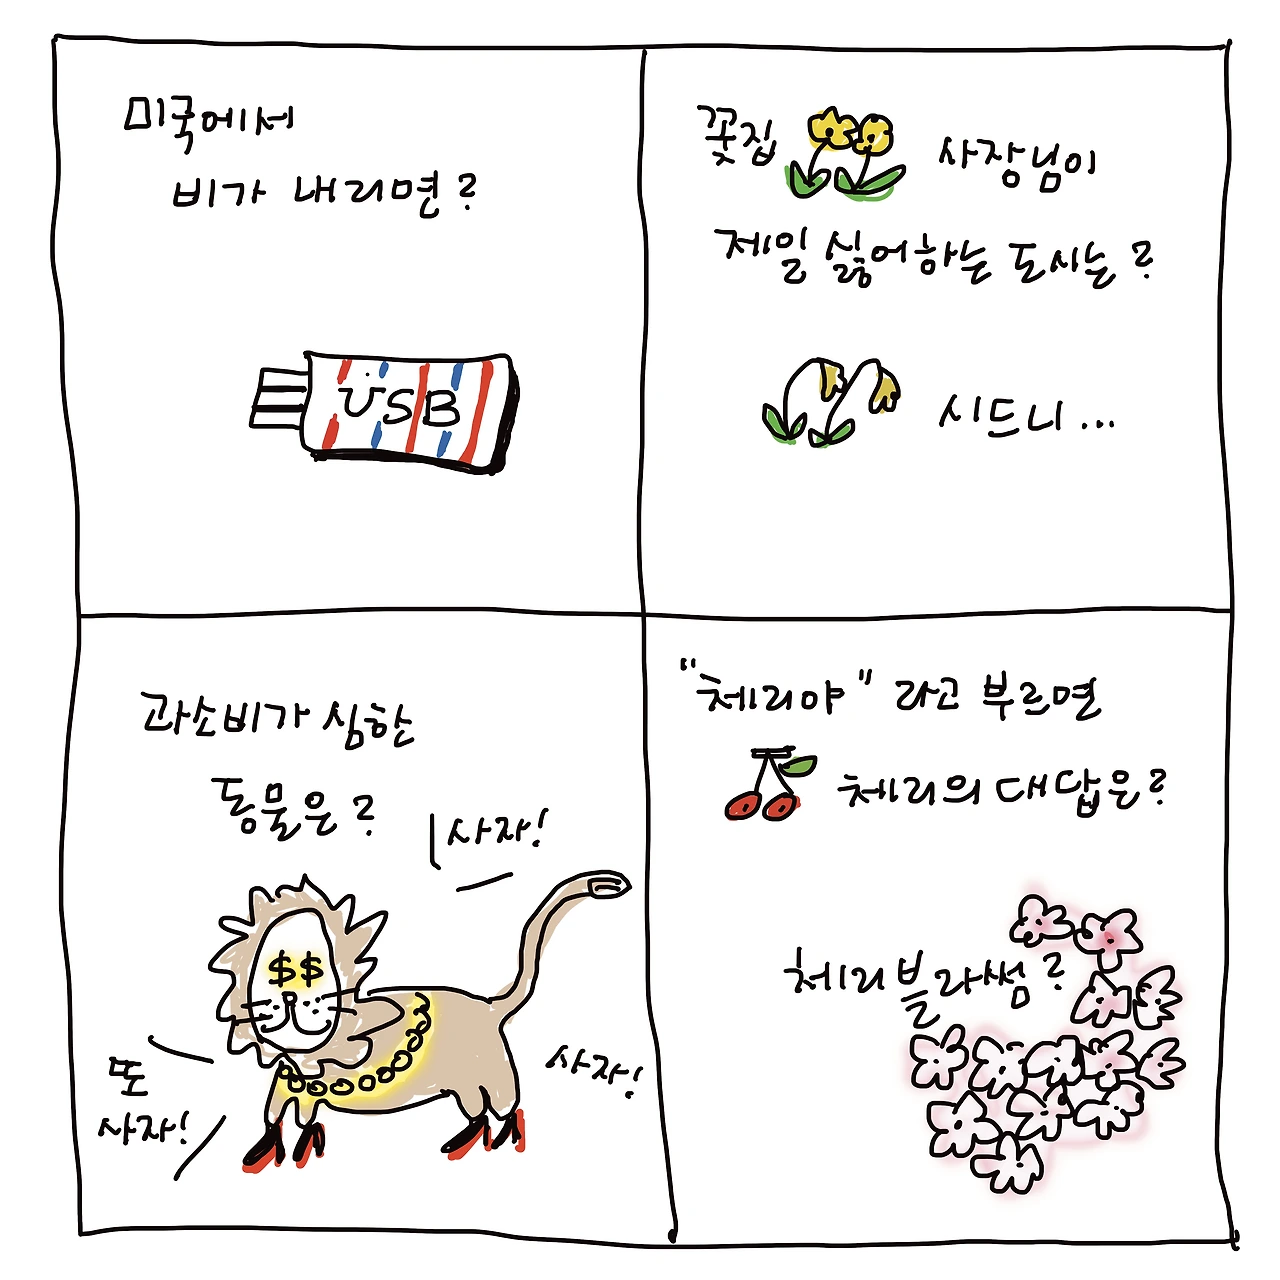 미국에서
비가 내리면?
USB
꽃집 사장님이
제일 싫어하는 도시는?
시드니...
과소비가 심한
동물은?
사자!
$$
또
사자!
사자!
"체리야" 라고 부르면
체리의 대답은?
체리블라썸?